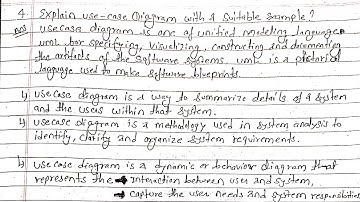 4. Explain use-case Diagram with a suitable example?
Ans usecase diagram is one of unified modeling language
uml for specifying, visualizing, constructing and documenting
the artifacts of the software systems. uml is a pictorial
language used to make software blueprints.
1) usecase diagram is a way to summarize details of a system
and the users within that system.
4) usecase diagram is a methodology used in system analysis to
identify, clarify and organize system requirements.
b) use case diagram is a dynamic or behavior diagram that
represents the → interaction between user and system,
→ capture the user needs and system responsibilities